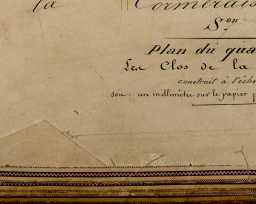 la Cormerais
Son
Plan du qua
Les Clos de la
construit à l'éche
sou: un millimètre sur le papier p